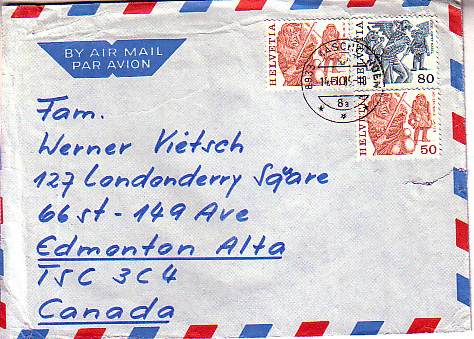 BY AIR MAIL
PAR AVION
HELVETIA
HELVETIA 80
HELVETIA 50
8933
8a
Fam.
Werner Vietsch
127 Londonderry Sqare
66 st - 149 Ave
Edmonton Alta
T5C 3C4
Canada